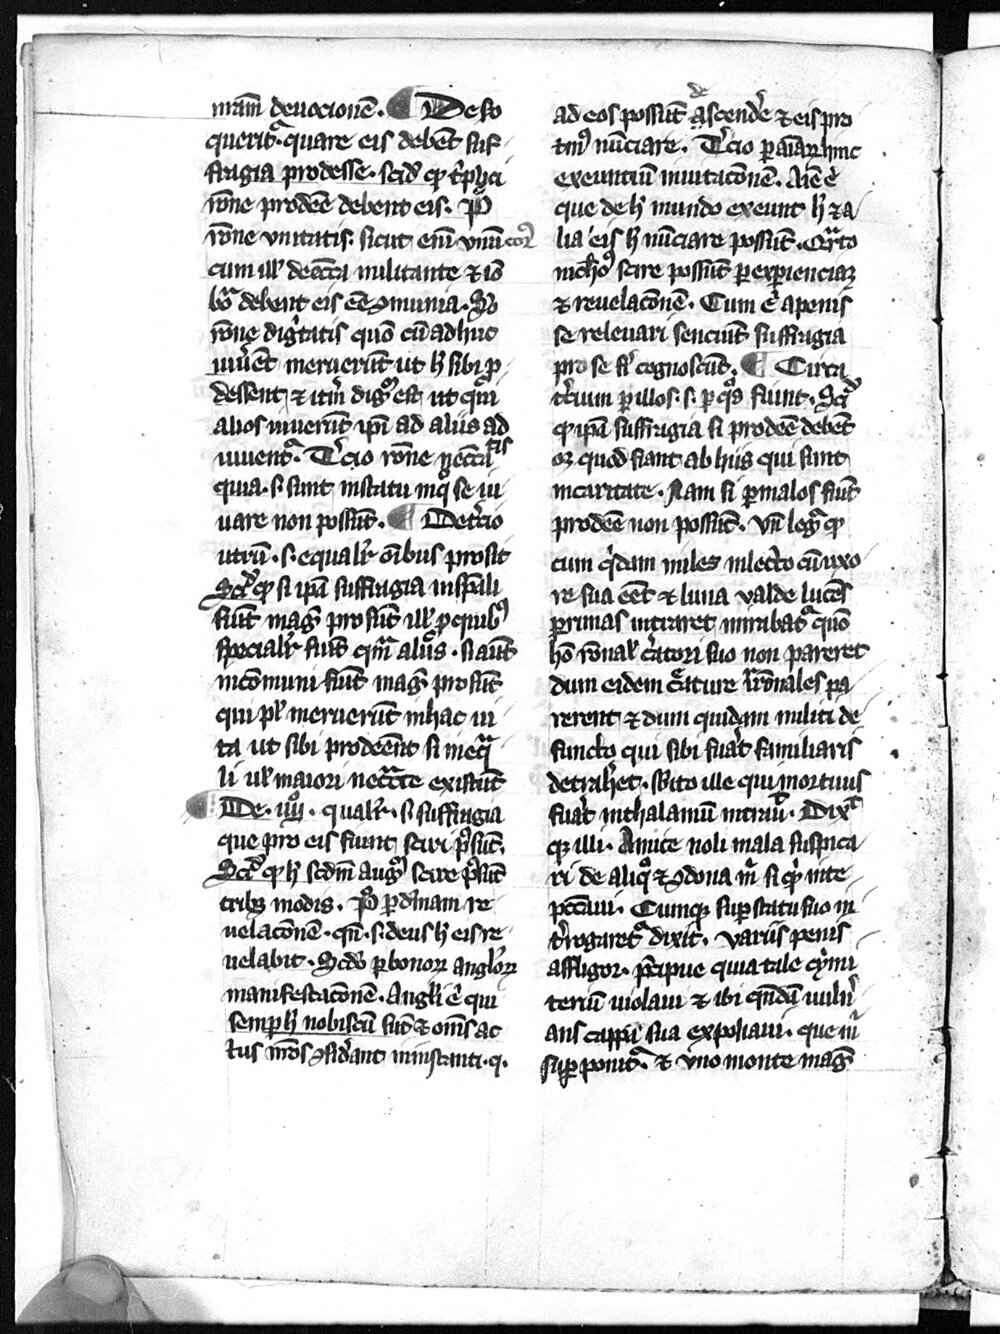 mam̄ deuocionē. ¶ De sō
querit᷑. quare eis debent suf
fragia prodesse. scið ꝙ t͛plici
rōne prodeē debent eis. P̊
rōne vnitatis. sicut eīm vnū cor᷑
cum ill᷑ de eccᷓa militante ⁊ iō
bōᷓ debent eis eē ꝯmunia. Sō
rōne dig̾tatis quō cū adhuc
uiuēt meruerūt ut h̄ sibi ꝓ
dessent ⁊ it̄m dig̾ est ut qui
alios iuuerūt ip̄i ab aliis ad
iuuent᷑. T͛cio rōne neccᷓitis
quia. s. sunt in statu in q̊ se iu
uare non possūt. ¶ De t͛cio
utrū. s. equalr᷑ oībus prosit
Scᷘ ꝙ si ip̄a suffragia in sp̄ali
fiūt mag̾ prosūt ill᷑ ꝓ quib᷒
specialr᷑ fiūt qᷓm aliis. si aūt
in cōmuni fiūt mag̾ prosūt
qui pl᷒ meruerūt in hac ui
ta ut sibi prodeēnt si in eqᷓ
li ul᷑ maiori neccᷓte existūt
De. iiij̊. qualr᷑. s. suffragia
que pro eis fiunt scire p̄sūt.
Scᷘ ꝙ h̄ scdm̄ aug᷒ scire p̄sūt
tribꝫ modis. P̊ ꝑ diuinam re
uelacōnē. qn̄. s. deus h̄ eis re
uelabit. Scðo ꝑ bonoꝝ angl̄oꝝ
manifestacōnē. Angl̄i .n. qui
semꝑ h̄ nobiscū sūt ⁊ om̄s ac
tus nr̄os ꝯsid͛ant in instanti. q.
ad eos possūt de
ascend͛e ⁊ eis pro
tin᷒ nūciare. T͛cio ꝑ aīaꝝ hinc
exeuntiū inuitacōnē. Aīe .n.
que de h̄ mundo exeunt h̄ ⁊ a
lia eis h̄ nūciare possūt. Qᷓrto
nichō᷒ scire possūt ꝑ experienciaꝫ
⁊ reuelacōnē. Cum .n. a penis
se releuari senciūt suffragia
pro se fi᷑ cognoscūt. ¶ Circa
t͛cium ꝑ illos. s. ꝑ qᵒs fiunt. Scᷘ
ꝙ ip̄a suffragia si prodeē debēt
oꝫ quod fiant ab hiis qui sunt
in caritate. Nam si ꝑ malos fiūt
prodeē non possūt. Vn̄ leg᷑ ꝙ
cum qⁱdam miles in lecto cū uxo
re sua eēt ⁊ luna valde lucēs
ꝑ rimas intraret mirabat᷑ quō
hō rōnal᷑ c͛atori suo non pareret
dum eidem c͛ature irrōnales pa
rerent ⁊ dum quidam militi de
functo qui sibi fuat familiaris
detrah͛et. s᷑bito ille qui mortuus
fuat in thalamū intrauᵗ. Dixᵗ
qꝫ illi. Amice noli mala suspica
ri de aliqᵒ ⁊ ꝯdona m̄ si qⁱ in te
pcc̄aui. Cumqꝫ suꝑ statu suo in
t͛rogaret᷑ dixit. Variis penis
affligor. p̄cipue quia tale cẏmi
teriū uiolaui ⁊ ibi quēdā uuln͛
ans cappā sua expoliaui. que m̄
suꝑ ponit᷑. ⁊ vno monte mag̾